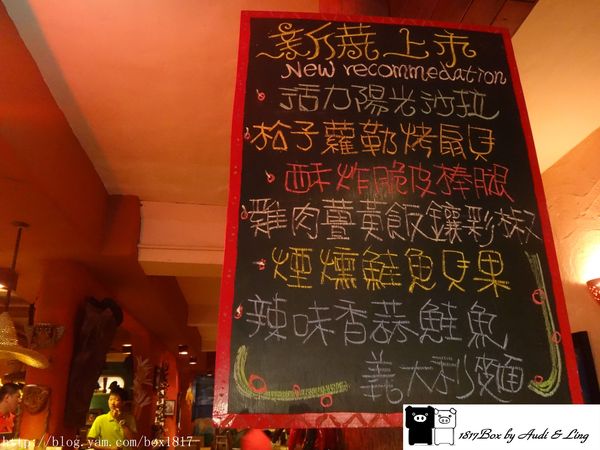 新菜上市
New recommedation
活力陽光沙拉
松子蘿勒烤扇貝
酥炸脆皮棒腿
雞肉薑黃飯鑲彩椒
煙燻鮭魚貝果
辣味香蒜鮭魚
義大利麵
http://blog.yam.com/box1817
1817Box by Audi & Ling